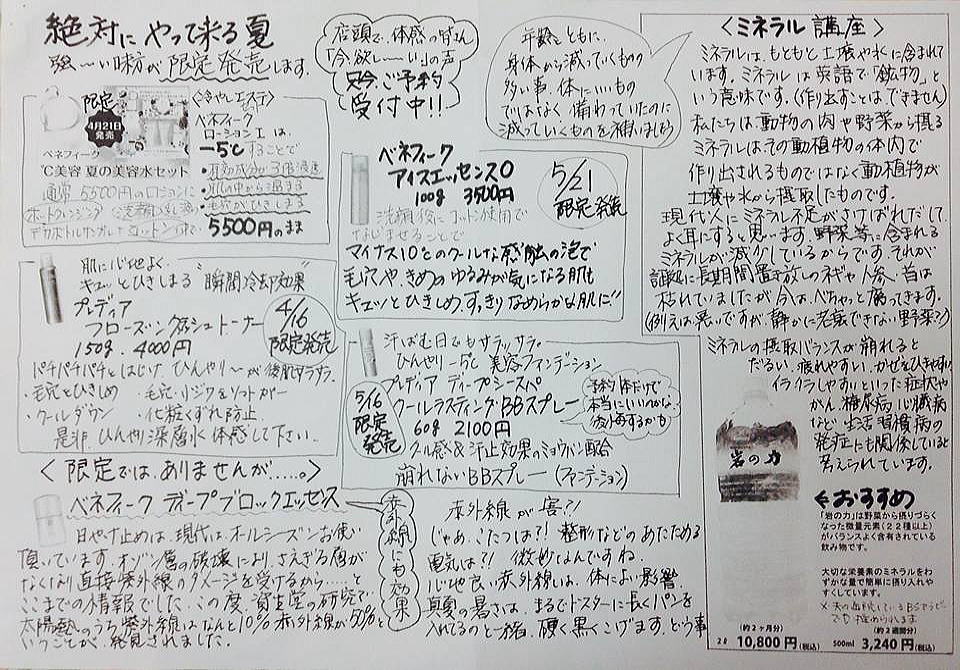 絶対にやって来る夏
強〜い味方が限定発売します。
店頭で、体感の皆さん
「今欲し〜い」の声
只今ご予約
受付中!!
年齢とともに、
身体から減っていくもの
多い事。体にいいもの
ではなく備わっていたのに
減っていくものを補いましょう
限定
4月21日
発売
ベネフィーク
℃美容 夏の美容水セット
<冷やしエステ>
ベネフィーク
ローションⅠは、
−5℃することで
・肌の中から温まる
・毛穴がひきしまる
通常5500円のローションに
5500円のまま
ベネフィーク
アイスエッセンスO
100g 3500円
5/21
限定発売
洗顔後にコットン使用で
なじませることで
マイナス10℃のクールな感触の泡で
毛穴や、きめのゆるみが気になる肌も
キュッとひきしめ、すっきりなめらかな肌に!!
肌に心地よく、
キュッとひきしまる“瞬間冷却効果”
プレディア
150g. 4000円
4/16
限定発売
パチパチパチとはじけ、ひんやり〜が後肌サラサラ。
・毛穴ひきしめ
・クールダウン ・化粧くずれ防止
是非ひんやり深層水体感して下さい。
汗ばむ日でもサラッサラ。
ひんやり−5℃ 美容ファンデーション
プレディア ディープシースパ
クールラスティングBBスプレー
60g 2100円
5/16
限定発売
予約体だけで
本当にいいのかな
クール感&汗止効果のミョウバン配合
崩れないBBスプレー(ファンデーション)
<限定では、ありませんが……。>
ベネフィーク ディープブロックエッセンス
赤外線にも効果
日やけ止めは、現代は、オールシーズンお使い
頂いています。オゾン層の破壊により、さえぎる層が
なくなり直接紫外線のダメージを受けるから……と
ここまでの情報でした。この度、資生堂の研究で
太陽熱のうち紫外線はなんと10% 赤外線が50%と
いうことが、発見されました。
赤外線が害?!
じゃあ、こたつは?! 整形などのあたためる
電気は?! 微妙なんですね。
心地良い赤外線は、体によい影響。
真夏の暑さは、まるでトースターに長くパンを
入れてるのと一緒。硬く黒くこげます。どう事
<ミネラル講座>
ミネラルは、もともと土壌や水に含まれて
います。ミネラルは英語で「鉱物」と
いう意味です。(作り出すことは、できません)
私たちは動物の肉や野菜から摂る
ミネラルはその動植物の体内で
作り出されるものではなく動植物が
土壌や水から摂取したものです。
現代人にミネラル不足がさけばれだして
よく耳にすると思います。野菜等に含まれる
ミネラルが減少しているからです。それが
証拠に長期間置き放しのネギや人参、昔は
枯れていましたが今は、べちゃっと腐ってきます。
(例えは悪いですが、静かに老衰できない野菜?)
ミネラルの摂取バランスが崩れると
だるい、疲れやすい、かぜをひきやすい
イライラしやすいといった症状や
がん、糖尿病、心臓病
など生活習慣病の
発症にも関係していると
考えられています。
岩の力
←おすすめ
「岩の力」は野菜から摂りづらく
なった微量元素(22種以上)
がバランスよく含有されている
飲み物です。
大切な栄養素のミネラルをわ
ずかな量で簡単に摂り入れや
すくしています。
(約2ヶ月分) (約2週間分)
2ℓ 10,800円(税込) 500ml 3,240円(税込)